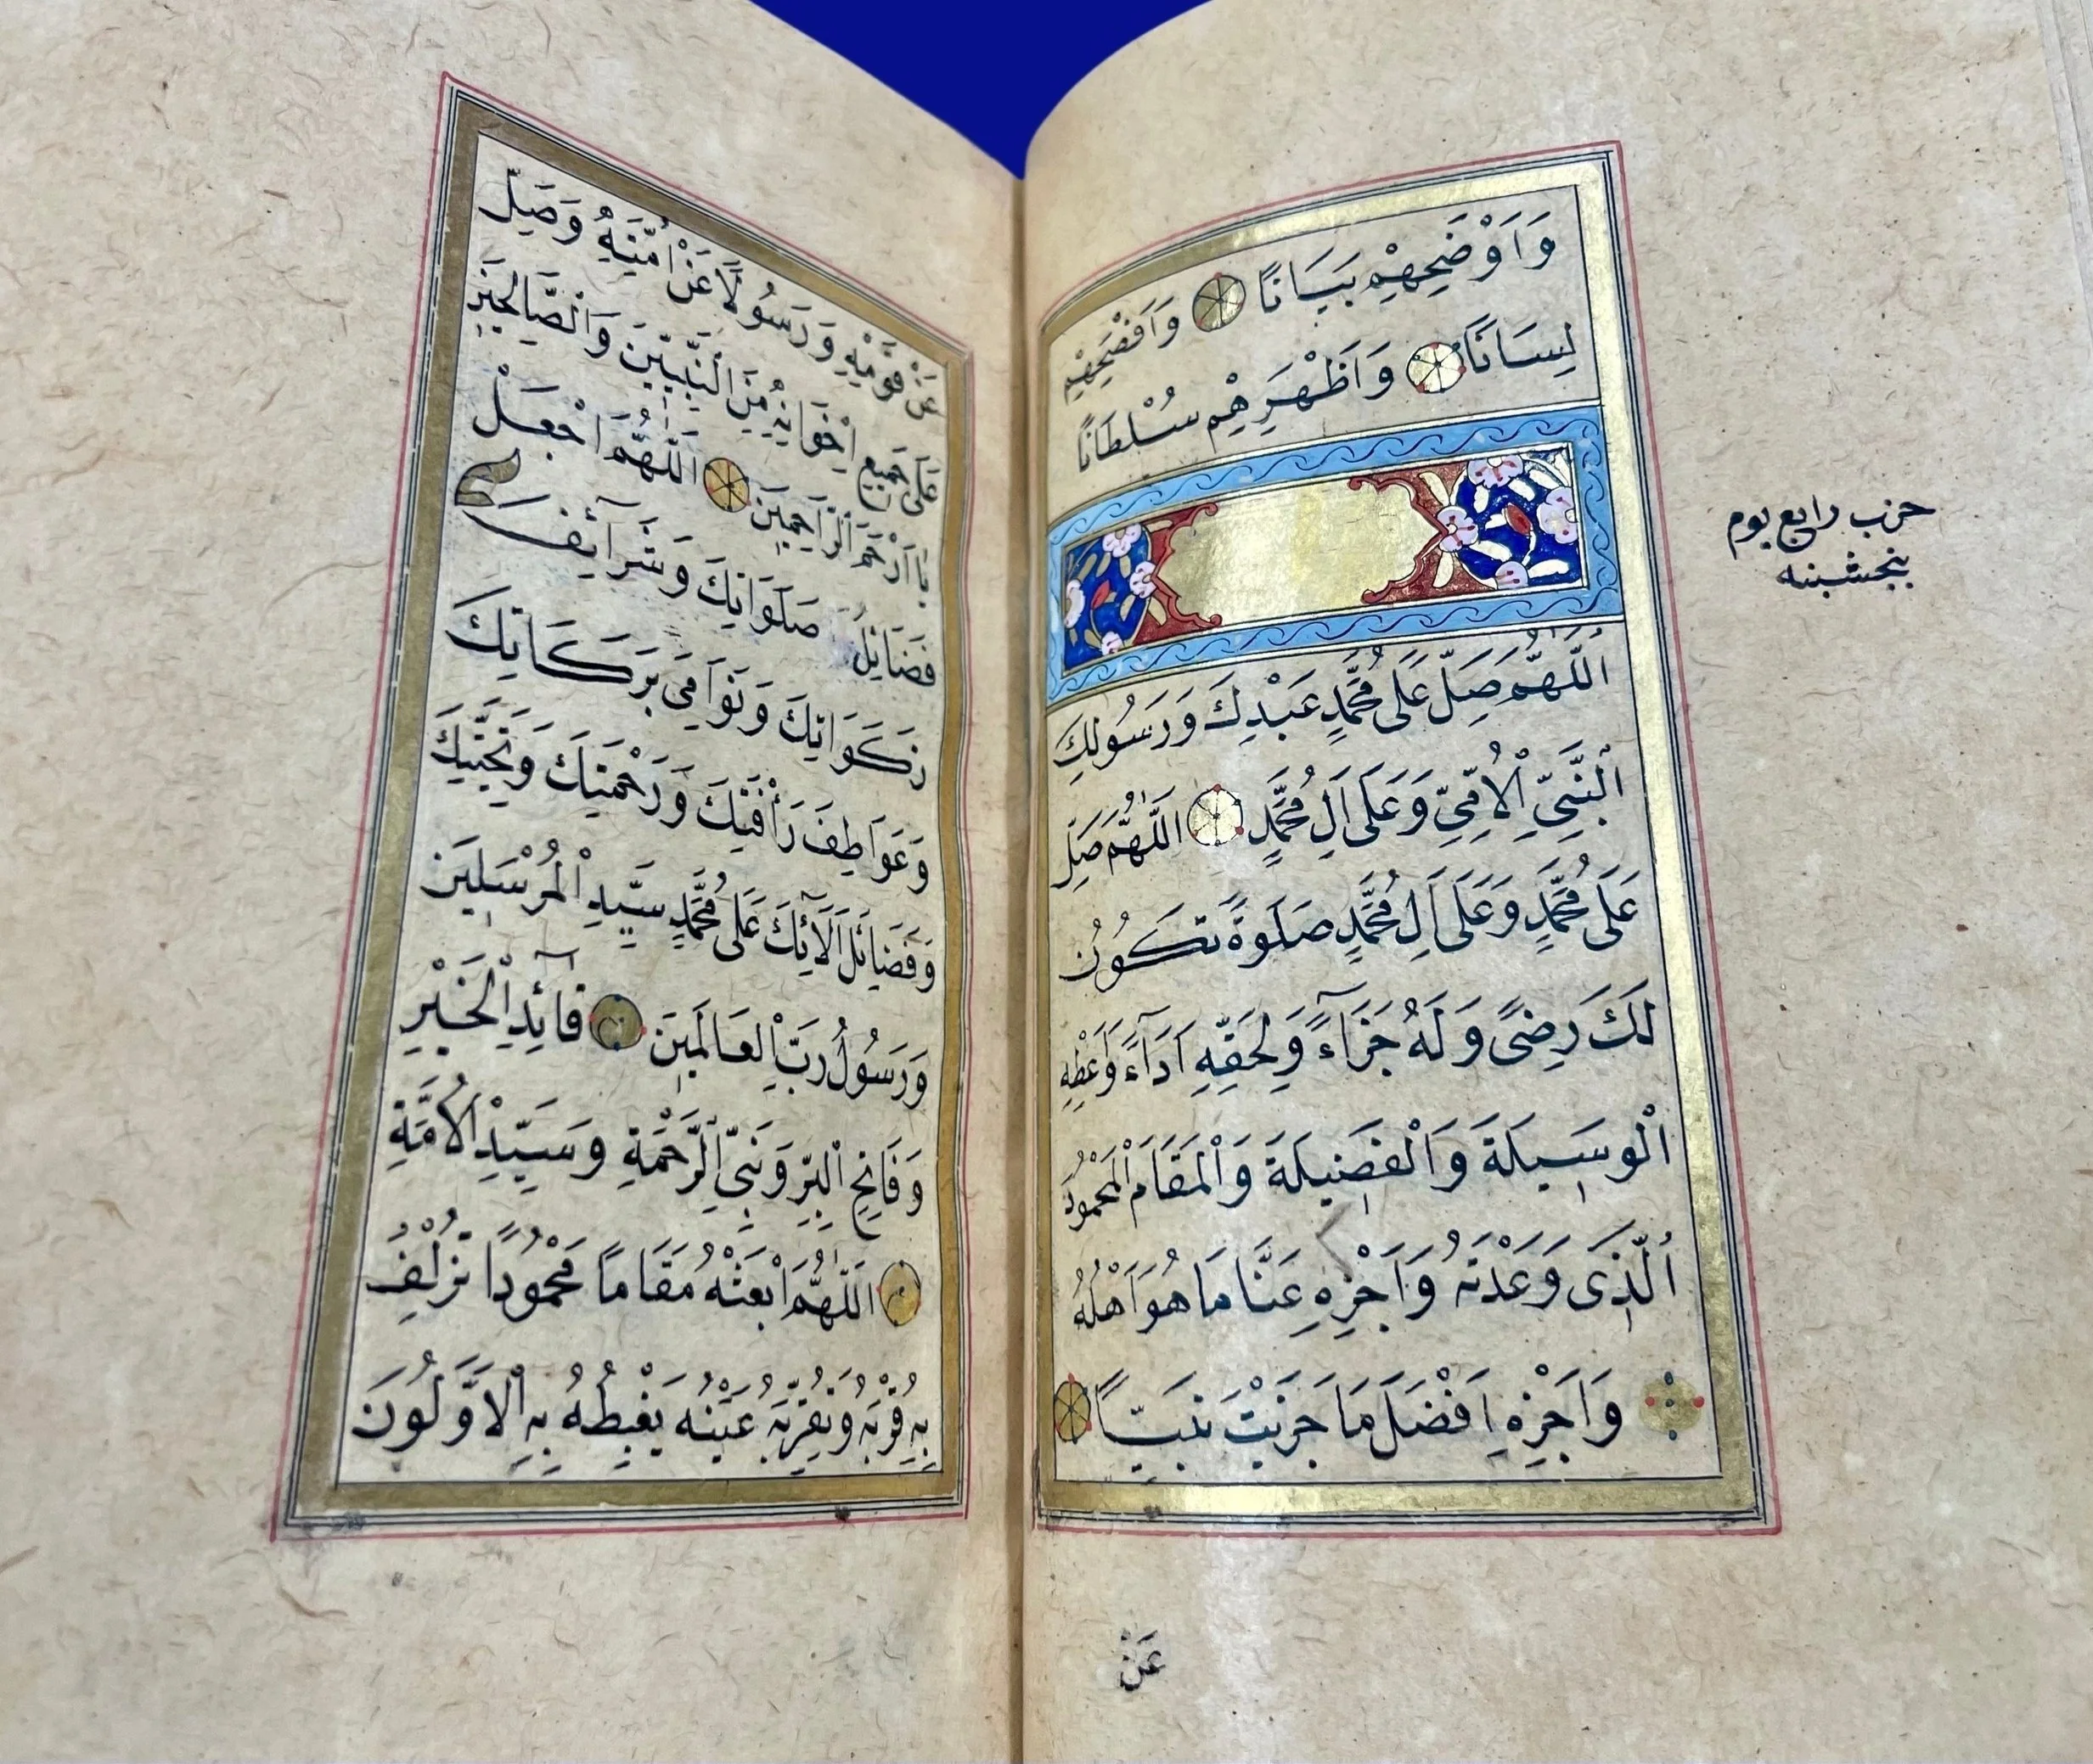 وَاَوْضَحِهِمْ بَيَانًا وَاَفْصَحِهِمْ
لِسَانًا وَاَظْهَرِهِمْ سُلْطَانًا
حزب رابع يوم
پنجشنبه
اَللّٰهُمَّ صَلِّ عَلَى مُحَمَّدٍ عَبْدِكَ وَرَسُولِكَ
اَلنَّبِيِّ الْاُمِّيِّ وَعَلَى اٰلِ مُحَمَّدٍ اَللّٰهُمَّ صَلِّ
عَلَى مُحَمَّدٍ وَعَلَى اٰلِ مُحَمَّدٍ صَلَوةً تَكُونُ
لَكَ رِضًى وَلَهُ جَزَآءً وَلِحَقِّهِ اَدَآءً وَاَعْطِهِ
الْوَسِيلَةَ وَالْفَضِيلَةَ وَالْمَقَامَ الْمَحْمُودَ
الَّذِى وَعَدْتَهُ وَاَجْزِهِ عَنَّا مَا هُوَ اَهْلُهُ
وَاَجْزِهِ اَفْضَلَ مَا جَزَيْتَ نَبِيًّا
عَنْ
عَنْ قَوْمِهِ وَرَسُولًا عَنْ اُمَّتِهِ وَصَلِّ
عَلَى جَمِيعِ اِخْوَانِهِ مِنَ النَّبِيِّينَ وَالصَّالِحِينَ
يَا اَرْحَمَ الرَّاحِمِينَ اَللّٰهُمَّ اجْعَلْ
فَضَائِلَ صَلَوَاتِكَ وَشَرَآئِفَ
زَكَوَاتِكَ وَنَوَامِيَ بَرَكَاتِكَ
وَعَوَاطِفَ رَأْفَتِكَ وَرَحْمَتِكَ وَتَحِيَّتِكَ
وَفَضَائِلَ اٰلَآئِكَ عَلَى مُحَمَّدٍ سَيِّدِ الْمُرْسَلِينَ
وَرَسُولُ رَبِّ الْعَالَمِينَ قَآئِدِ الْخَيْرِ
وَفَاتِحِ الْبِرِّ وَنَبِيِّ الرَّحْمَةِ وَسَيِّدِ الْاُمَّةِ
اَللّٰهُمَّ اَبْعَثْهُ مُقَامًا مَحْمُودًا تُزْلِفُ
بِهِ قُرْبَهُ وَتُقِرُّ بِهِ عَيْنَهُ يَغْبِطُهُ بِهِ الْاَوَّلُونَ